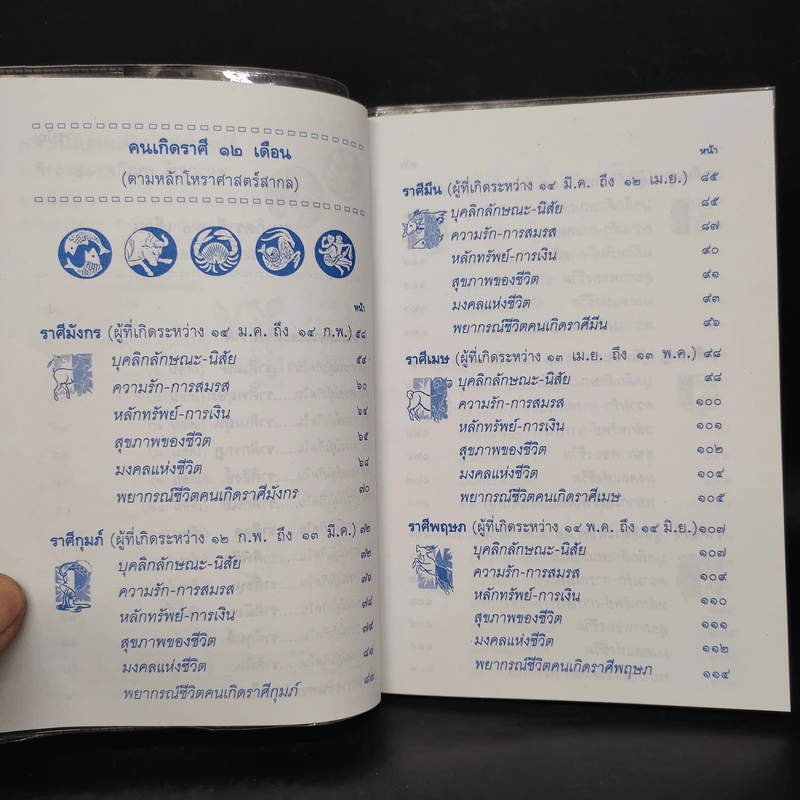 คนเกิดราศี ๑๒ เดือน
(ตามหลักโหราศาสตร์สากล)
หน้า
ราศีมังกร (ผู้ที่เกิดระหว่าง ๑๔ ม.ค. ถึง ๑๔ ก.พ.) ๕๘
บุคลิกลักษณะ-นิสัย ๕๘
ความรัก-การสมรส ๖๐
หลักทรัพย์-การเงิน ๖๔
สุขภาพของชีวิต ๖๕
มงคลแห่งชีวิต ๖๘
พยากรณ์ชีวิตคนเกิดราศีมังกร ๗๐
ราศีกุมภ์ (ผู้ที่เกิดระหว่าง ๑๒ ก.พ. ถึง ๑๓ มี.ค.) ๗๒
บุคลิกลักษณะ-นิสัย ๗๒
ความรัก-การสมรส ๗๖
หลักทรัพย์-การเงิน ๗๘
สุขภาพของชีวิต ๗๙
มงคลแห่งชีวิต ๘๑
พยากรณ์ชีวิตคนเกิดราศีกุมภ์ ๘๓
หน้า
ราศีมีน (ผู้ที่เกิดระหว่าง ๑๔ มี.ค. ถึง ๑๒ เม.ย.) ๘๕
บุคลิกลักษณะ-นิสัย ๘๕
ความรัก-การสมรส ๘๗
หลักทรัพย์-การเงิน ๙๐
สุขภาพของชีวิต ๙๑
มงคลแห่งชีวิต ๙๓
พยากรณ์ชีวิตคนเกิดราศีมีน ๙๖
ราศีเมษ (ผู้ที่เกิดระหว่าง ๑๓ เม.ย. ถึง ๑๓ พ.ค.) ๙๘
บุคลิกลักษณะ-นิสัย ๙๘
ความรัก-การสมรส ๑๐๐
หลักทรัพย์-การเงิน ๑๐๑
สุขภาพของชีวิต ๑๐๒
มงคลแห่งชีวิต ๑๐๔
พยากรณ์ชีวิตคนเกิดราศีเมษ ๑๐๕
ราศีพฤษภ (ผู้ที่เกิดระหว่าง ๑๔ พ.ค. ถึง ๑๔ มิ.ย.) ๑๐๗
บุคลิกลักษณะ-นิสัย ๑๐๗
ความรัก-การสมรส ๑๐๙
หลักทรัพย์-การเงิน ๑๑๐
สุขภาพของชีวิต ๑๑๑
มงคลแห่งชีวิต ๑๑๒
พยากรณ์ชีวิตคนเกิดราศีพฤษภ ๑๑๔